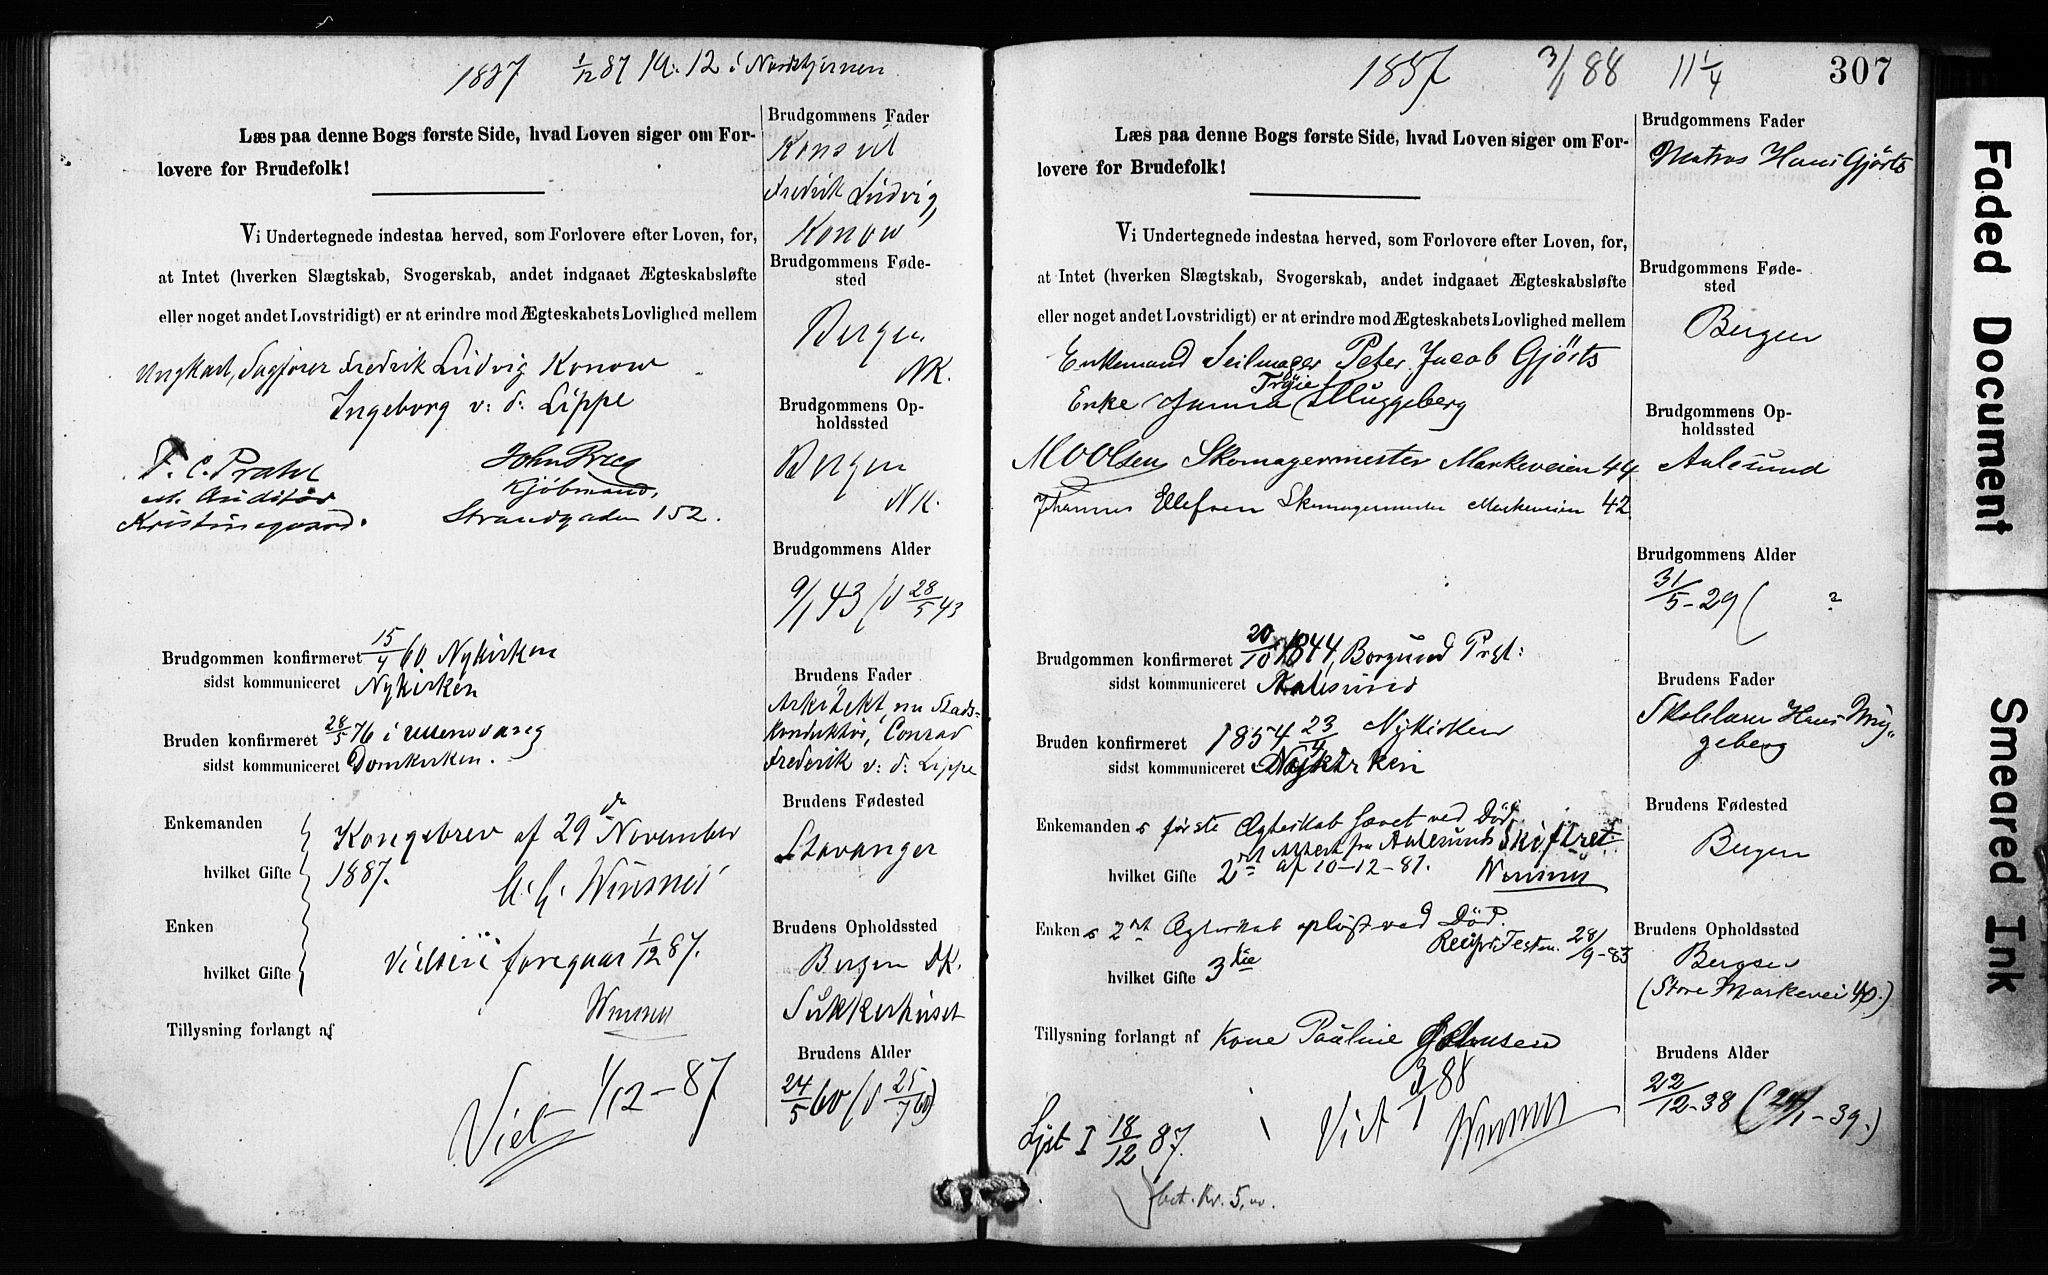 1887 1/12 87 Kl. 12 i Nordstjernen
Læs paa denne Bogs første Side, hvad Loven siger om For-
lovere for Brudefolk!
Vi Undertegnede indestaa herved, som Forlovere efter Loven, for,
at Intet (hverken Slægtskab, Svogerskab, andet indgaaet Ægteskabsløfte
eller noget andet Lovstridigt) er at erindre mod Ægteskabets Lovlighed mellem
Ungkarl, Sagfører Fredrik Ludvig Konow
Ingeborg v: d: Lippe
F. C. Prahl
Auditør
Kristinegaard.
John Krieg
Kjøbmand,
Strandgaden 152.
Brudgommen konfirmeret 15/4 60 Nykirken
sidst kommuniceret Nykirken
Bruden konfirmeret 28/5 76 i Ullensvang
sidst kommuniceret Domkirken.
Enkemanden
hvilket Gifte
Kongebrev af 29 de November
1887.
Enken
hvilket Gifte
Vielsen foregaar 1/12 87.
Tillysning forlangt af
Viet 1/12 - 87
Brudgommens Fader
Konsul
Fredrik Ludvig
Konow
Brudgommens Føde-
sted
Bergen
NK.
Brudgommens Op-
holdssted
Bergen
NK.
Brudgommens Alder
9/1 43 (d 28/5 43
Brudens Fader
Arkitekt, nu Stads-
konduktør, Conrad
Frederik v: d: Lippe
Brudens Fødested
Stavanger
Brudens Opholdssted
Bergen DK.
Sukkerhuset
Brudens Alder
24/5 60 (d 25/7 60)
1887 3/1 88 11 1/4 307
Læs paa denne Bogs første Side, hvad Loven siger om For-
lovere for Brudefolk!
Vi Undertegnede indestaa herved, som Forlovere efter Loven, for,
at Intet (hverken Slægtskab, Svogerskab, andet indgaaet Ægteskabsløfte
eller noget andet Lovstridigt) er at erindre mod Ægteskabets Lovlighed mellem
Enkemand Seilmager Peter Jacob Gjørts
Enke Muggeberg
M O Olsen Skomagermester Markeveien 44
Johannes Ellefsen Skomagermester Markeveien 42
Brudgommen konfirmeret 20/10 1844, Borgund Prgt:
sidst kommuniceret Aalesund
Bruden konfirmeret 1854 23/4 Nykirken
sidst kommuniceret Nykirken
Enkemandens første Ægteskab hævet ved Død.
Attest fra Aalesunds Skifteret
hvilket Gifte 2det af 10-12-87.
Enkens 2det Ægteskab opløst ved Død.
28/9-83
hvilket Gifte 3die
Tillysning forlangt af Kone Pauline Johnsen
Viet 3/1 88
Lyst I 18/12 87.
bet. Kr. 5,00.
Brudgommens Fader
Matros Hans Gjørts
Brudgommens Føde-
sted
Bergen
Brudgommens Op-
holdssted
Aalesund
Brudgommens Alder
31/5-29 ( ?
Brudens Fader
Skolelærer Hans Mug-
geberg
Brudens Fødested
Bergen
Brudens Opholdssted
Bergen
(Store Markevei 40.)
Brudens Alder
22/12-38 (24/1-39.)
Faded Document
Smeared Ink